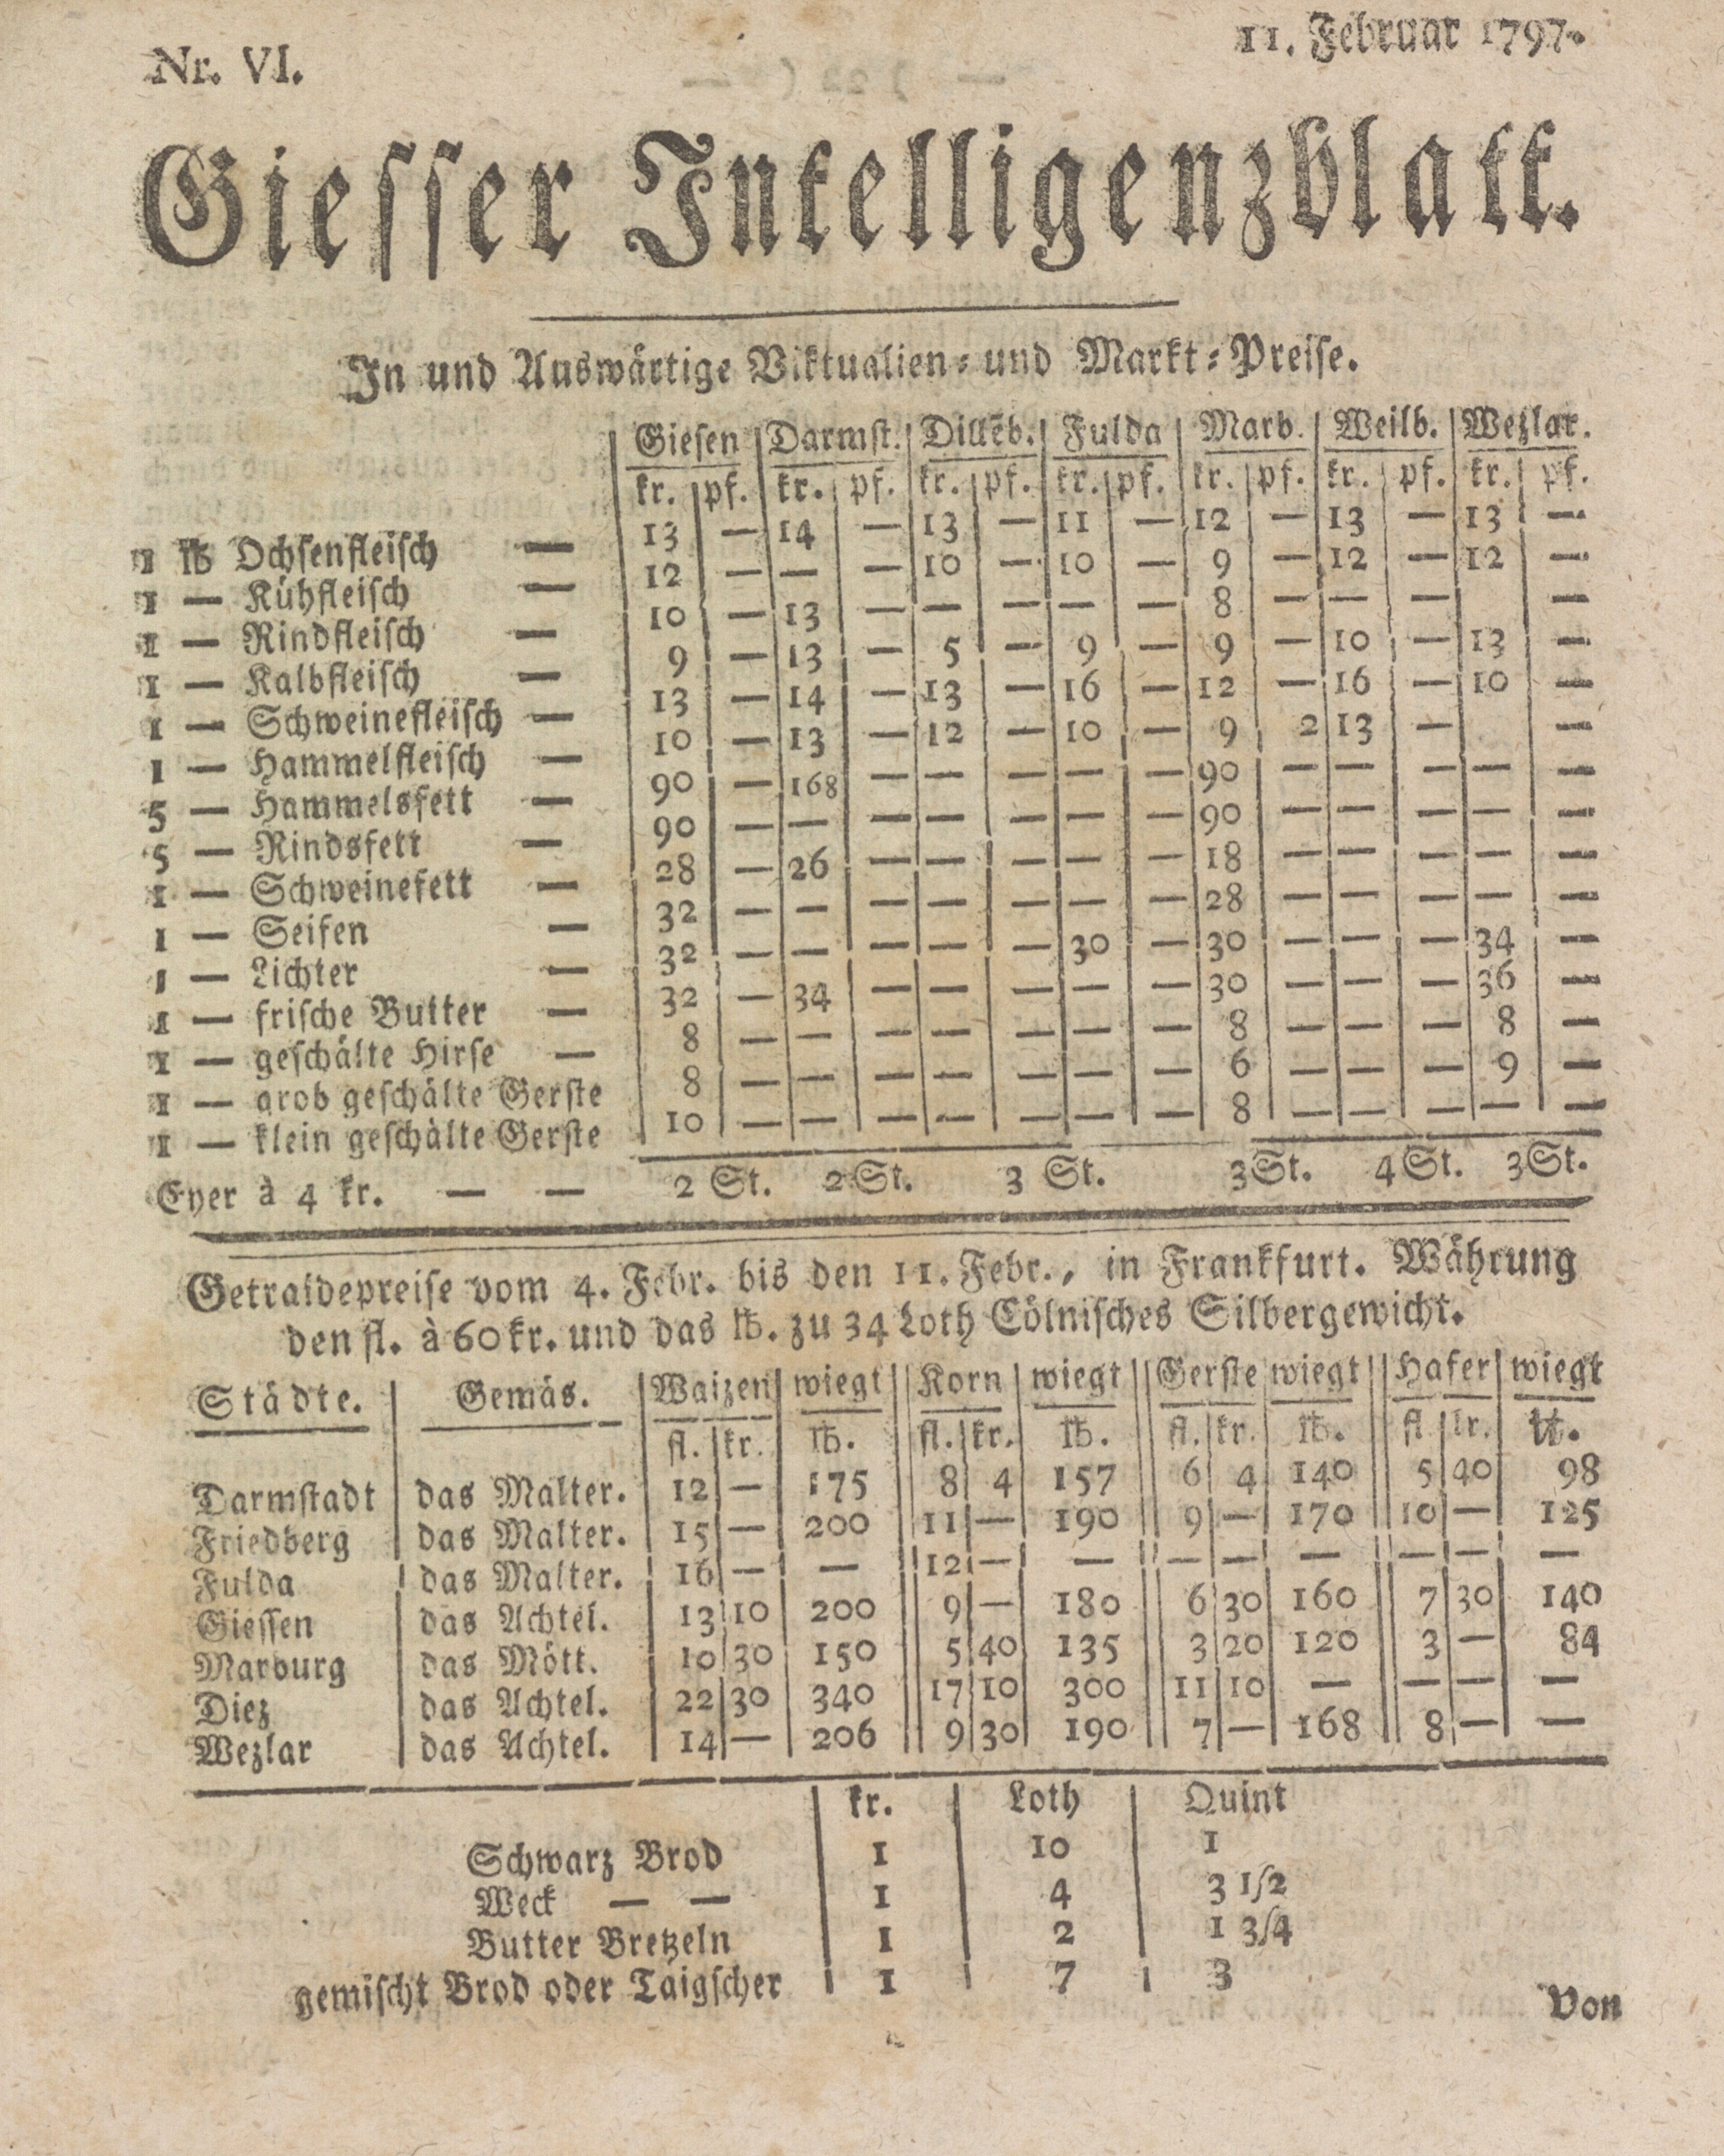 Nr. VI.
11. Februar 1797.
Giesser Intelligenzblatt.
In und Auswärtige Viktualien- und Markt-Preise.
Giesen | Darmst. | Dillēb. | Fulda | Marb. | Weilb. | Wezlar.
kr. | pf. | kr. | pf. | kr. | pf. | kr. | pf. | kr. | pf. | kr. | pf. | kr. | pf.
1 ℔ Ochsenfleisch — 13 | — | 14 | — | 13 | — | 11 | — | 12 | — | 13 | — | 13 | —
1 — Kühfleisch — 12 | — | — | — | 10 | — | 10 | — | 9 | — | 12 | — | 12 | —
1 — Rindfleisch — 10 | — | 13 | — | — | — | — | — | 8 | — | — | — | | —
1 — Kalbfleisch — 9 | — | 13 | — | 5 | — | 9 | — | 9 | — | 10 | — | 13 | —
1 — Schweinefleisch — 13 | — | 14 | — | 13 | — | 16 | — | 12 | — | 16 | — | 10 | —
1 — Hammelfleisch — 10 | — | 13 | — | 12 | — | 10 | — | 9 | 2 | 13 | — | | —
5 — Hammelsfett — 90 | — | 168 | — | — | — | — | — | 90 | — | — | — | — | —
5 — Rindsfett — 90 | — | — | — | — | — | — | — | 90 | — | — | — | — | —
1 — Schweinefett — 28 | — | 26 | — | — | — | — | — | 18 | — | — | — | — | —
1 — Seifen — 32 | — | — | — | — | — | — | — | 28 | — | — | — | — | —
1 — Lichter — 32 | — | — | — | — | — | 30 | — | 30 | — | — | — | 34 | —
1 — frische Butter — 32 | — | 34 | — | — | — | — | — | 30 | — | — | — | 36 | —
1 — geschälte Hirse — 8 | — | — | — | — | — | — | — | 8 | — | — | — | 8 | —
1 — grob geschälte Gerste 8 | — | — | — | — | — | — | — | 6 | — | — | — | 9 | —
1 — klein geschälte Gerste 10 | — | — | — | — | — | — | — | 8 | — | — | — | — | —
Eyer à 4 kr. — — 2 St. 2 St. 3 St. 3 St. 4 St. 3 St.
Getraidepreise vom 4. Febr. bis den 11. Febr., in Frankfurt. Währung
den fl. à 60 kr. und das ℔. zu 34 Loth Cölnisches Silbergewicht.
Städte. | Gemäs. | Waizen | wiegt || Korn | wiegt || Gerste | wiegt || Hafer | wiegt
fl. | kr. | ℔. || fl. | kr. | ℔. || fl. | kr. | ℔. || fl | kr. | ℔.
Darmstadt | das Malter. | 12 | — | 175 || 8 | 4 | 157 || 6 | 4 | 140 || 5 | 40 | 98
Friedberg | das Malter. | 15 | — | 200 || 11 | — | 190 || 9 | — | 170 || 10 | — | 125
Fulda | das Malter. | 16 | — | — || 12 | — | — || — | — | — || — | — | —
Giessen | das Achtel. | 13 | 10 | 200 || 9 | — | 180 || 6 | 30 | 160 || 7 | 30 | 140
Marburg | das Mött. | 10 | 30 | 150 || 5 | 40 | 135 || 3 | 20 | 120 || 3 | — | 84
Diez | das Achtel. | 22 | 30 | 340 || 17 | 10 | 300 || 11 | 10 | — || — | — | —
Wezlar | das Achtel. | 14 | — | 206 || 9 | 30 | 190 || 7 | — | 168 || 8 | — | —
kr. | Loth | Quint
Schwarz Brod | 1 | 10 | 1
Weck — — | 1 | 4 | 3 1/2
Butter Bretzeln | 1 | 2 | 1 3/4
gemischt Brod oder Taigscher | 1 | 7 | 3
Von